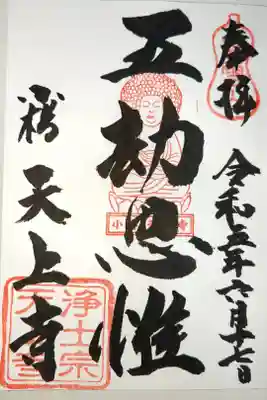 奉拝
令和五年六月十七日
五劫思惟
天上寺
浄土宗